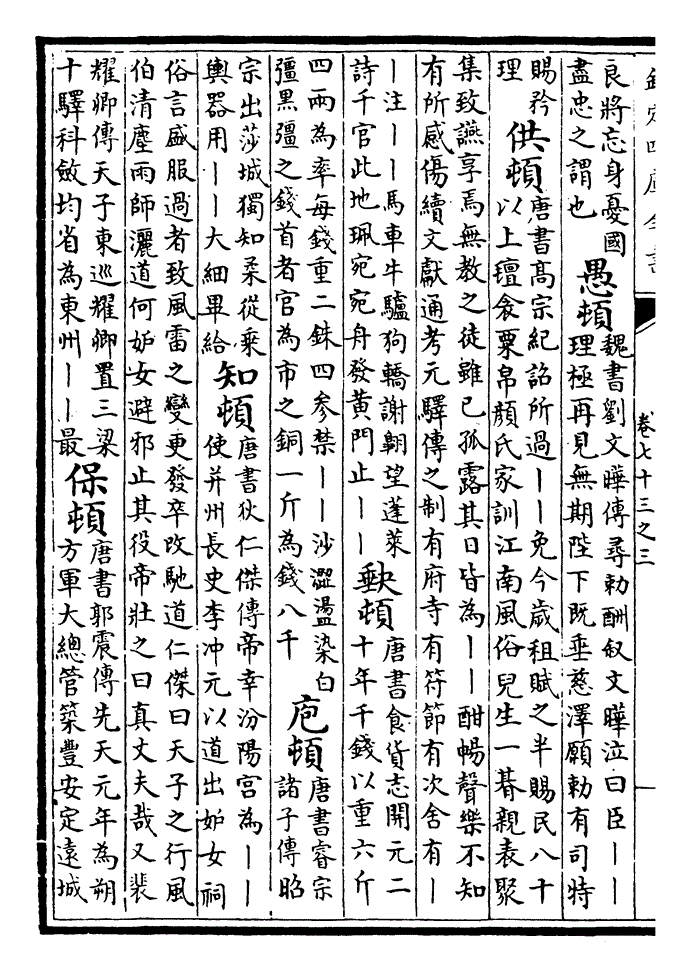 欽定四庫全書
卷七十三之三
良將忘身憂國
盡忠之謂也
愚頓
魏書劉文曄傳尋勅酬叙文曄泣曰臣丨丨
理極再見無期陛下既垂慈澤願勅有司特
賜矜
理
供頓
唐書髙宗紀詔所過丨丨免今歲租賦之半賜民八十
以上氊衾粟帛顔氏家訓江南風俗兒生一朞親表聚
集致讌享焉無教之徒雖已孤露其日皆為丨丨酣暢聲樂不知
有所感傷續文獻通考元驛傳之制有府寺有符節有次舍有丨
丨注丨丨馬車牛驢狗轎謝翺望蓬萊
詩千官此地珮宛宛舟發黃門止丨丨
缺頓
唐書食貨志開元二
十年千錢以重六斤
四兩為率每錢重二銖四參禁丨丨沙澀盪染白
彊黑彊之錢首者官為市之銅一斤為錢八千
庖頓
唐書睿宗
諸子傳昭
宗出莎城獨知柔從乗
輿器用丨丨大細畢給
知頓
唐書狄仁傑傳帝幸汾陽宮為丨丨
使并州長史李冲元以道出妒女祠
俗言盛服過者致風雷之變更發卒改馳道仁傑曰天子之行風
伯清塵雨師灑道何妒女避邪止其役帝壯之曰真丈夫哉又裴
耀卿傳天子東巡耀卿置三梁
十驛科斂均省為東州丨丨最
保頓
唐書郭震傳先天元年為朔
方軍大總管築豐安定遠城